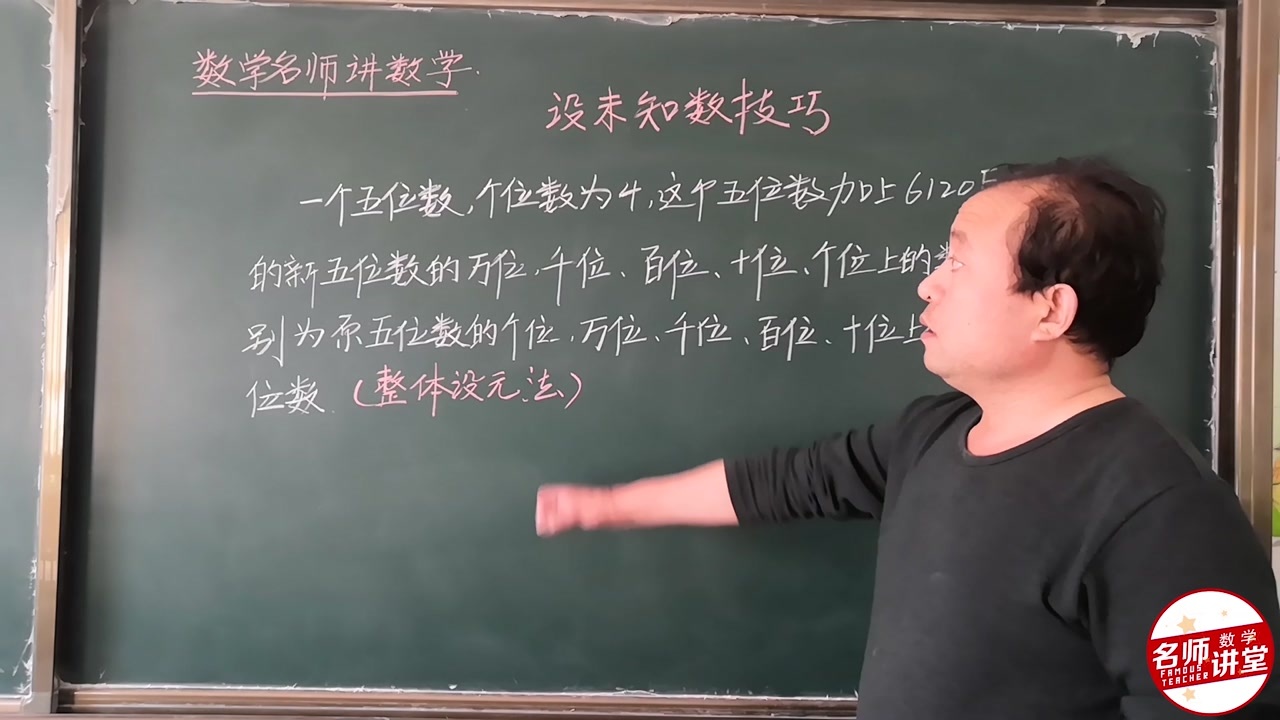 数学名师讲数学.
设未知数技巧
一个五位数,个位数为4,这个五位数加上6120
的新五位数的万位、千位、百位、十位、个位上的
别为原五位数的个位、万位、千位、百位、十位上
位数.(整体设元法)
名师
数学
讲堂
FAMOUS
TEACHER